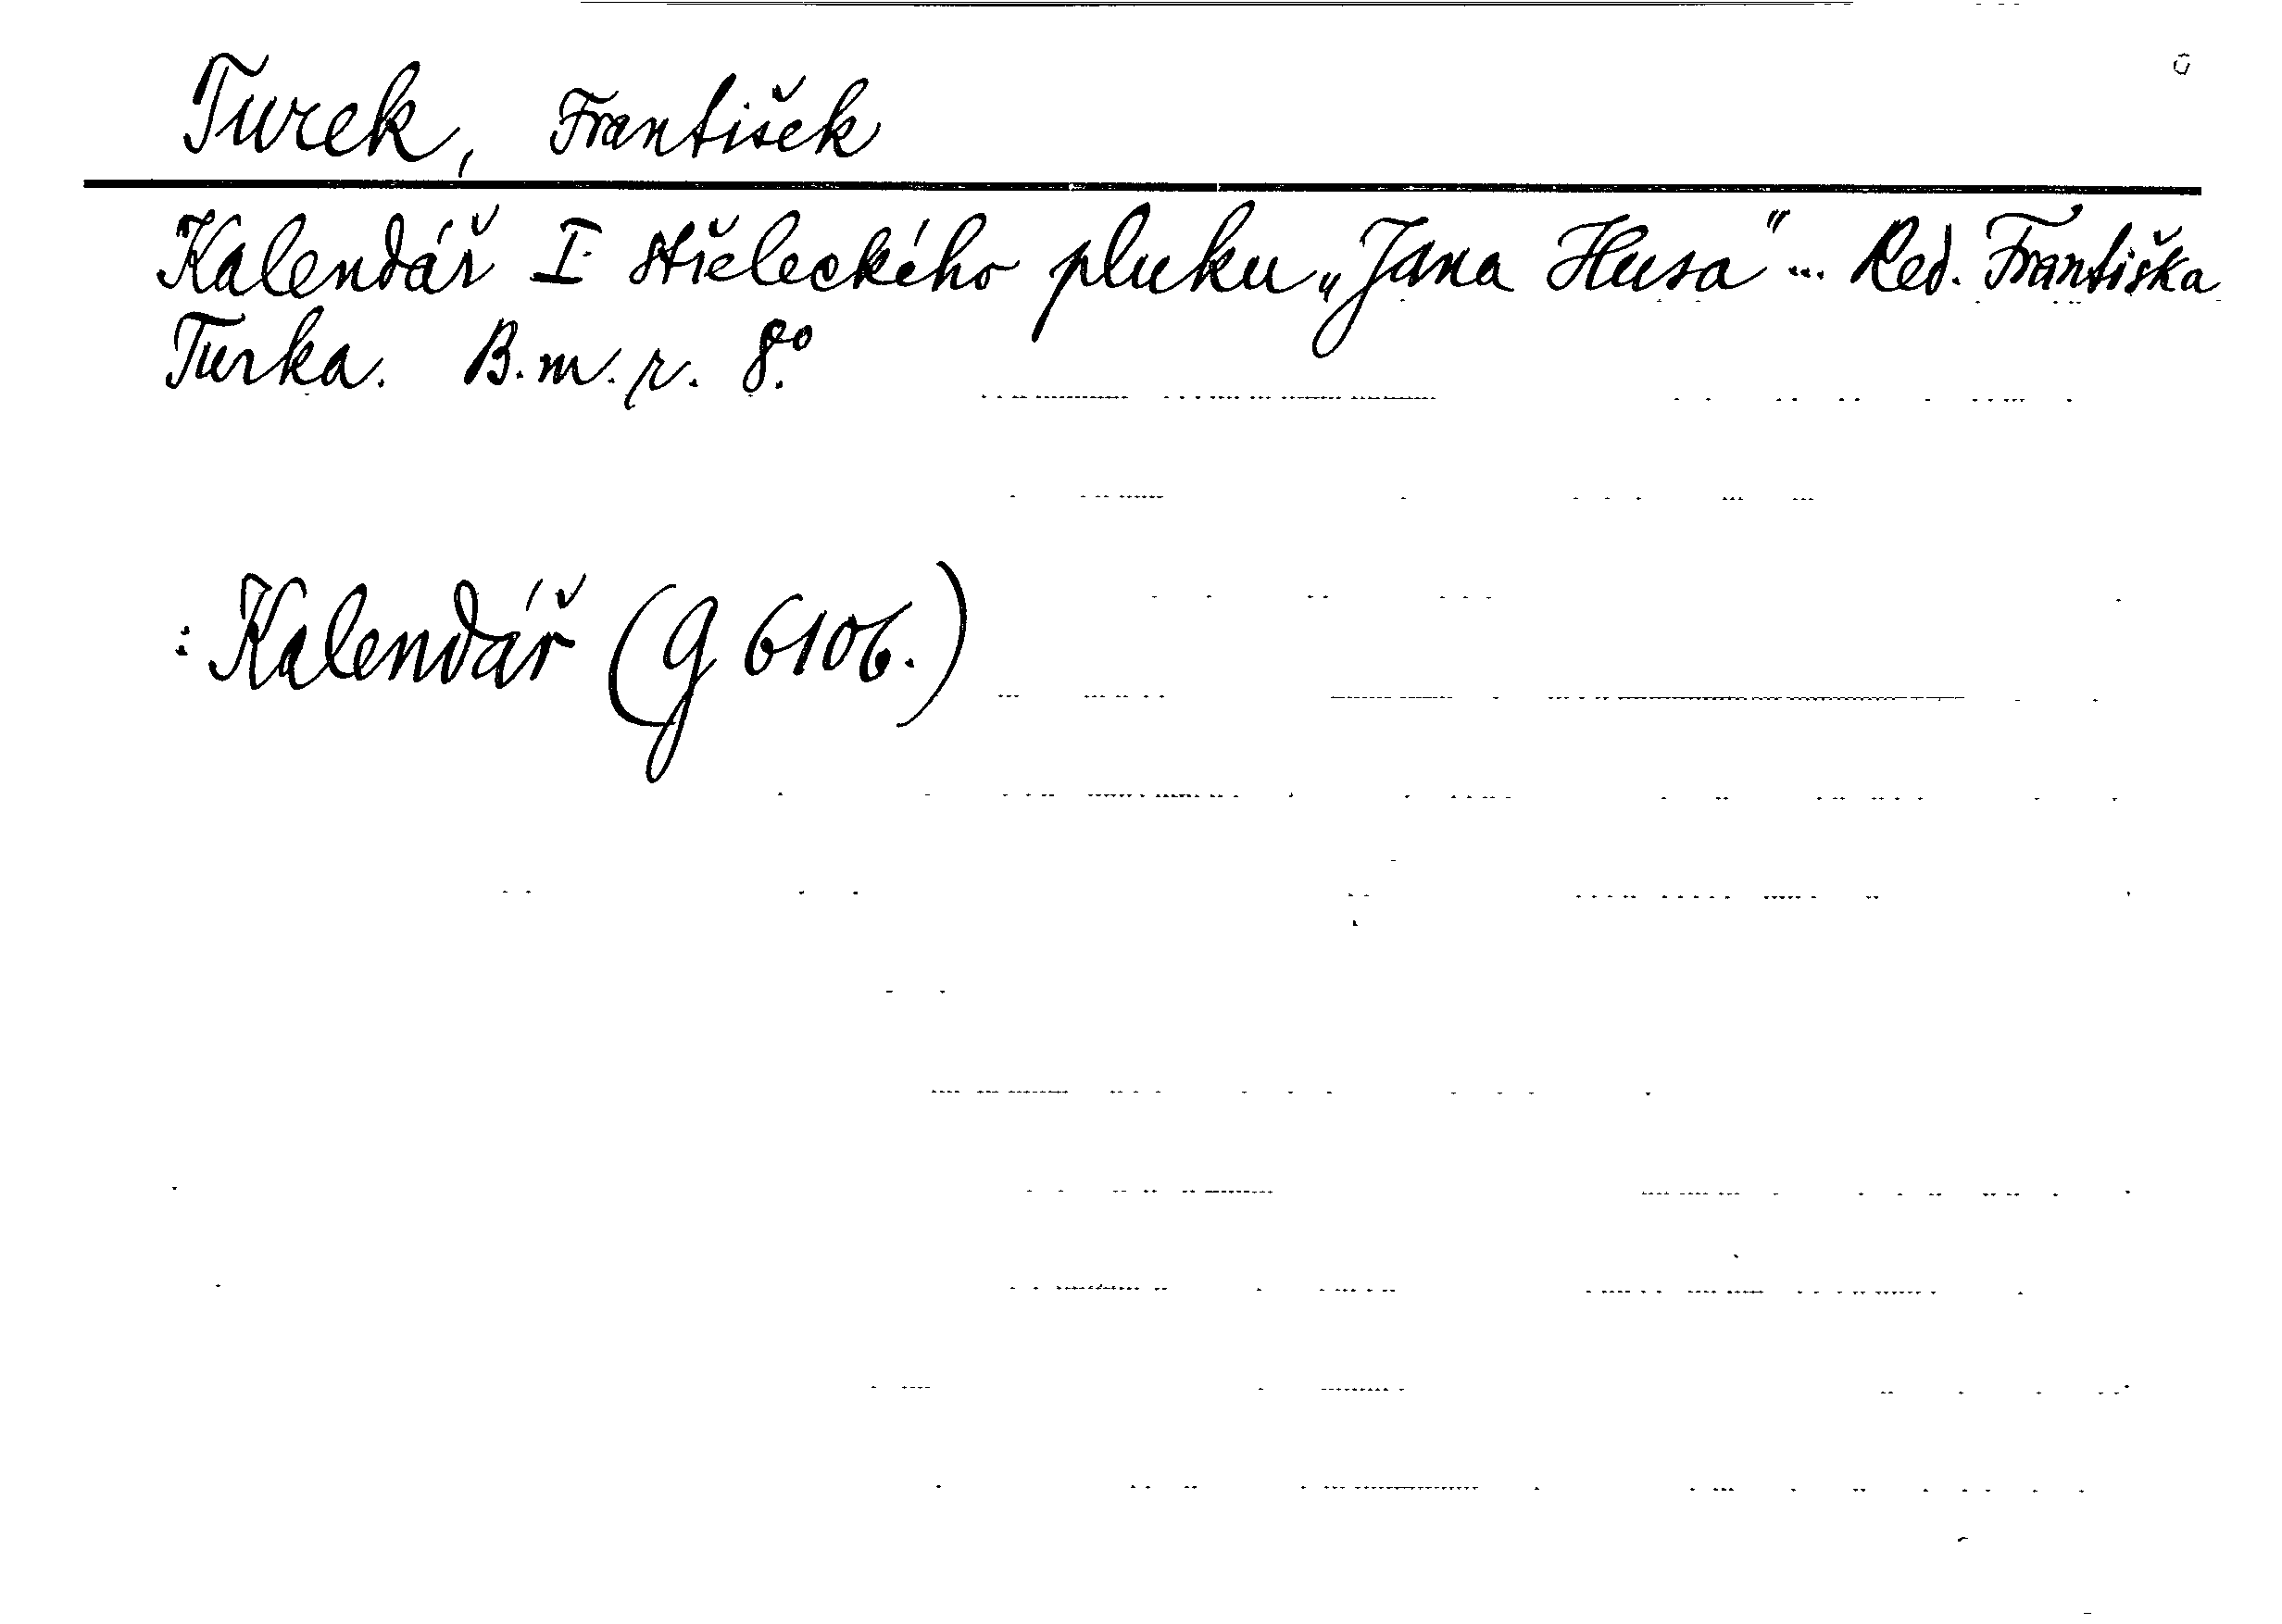 Turek, František
Kalendář I. střeleckého pluku „Jana Husa"... Red. Františka
Turka. B. m. r. 8°.
: Kalendář (G 6106.)